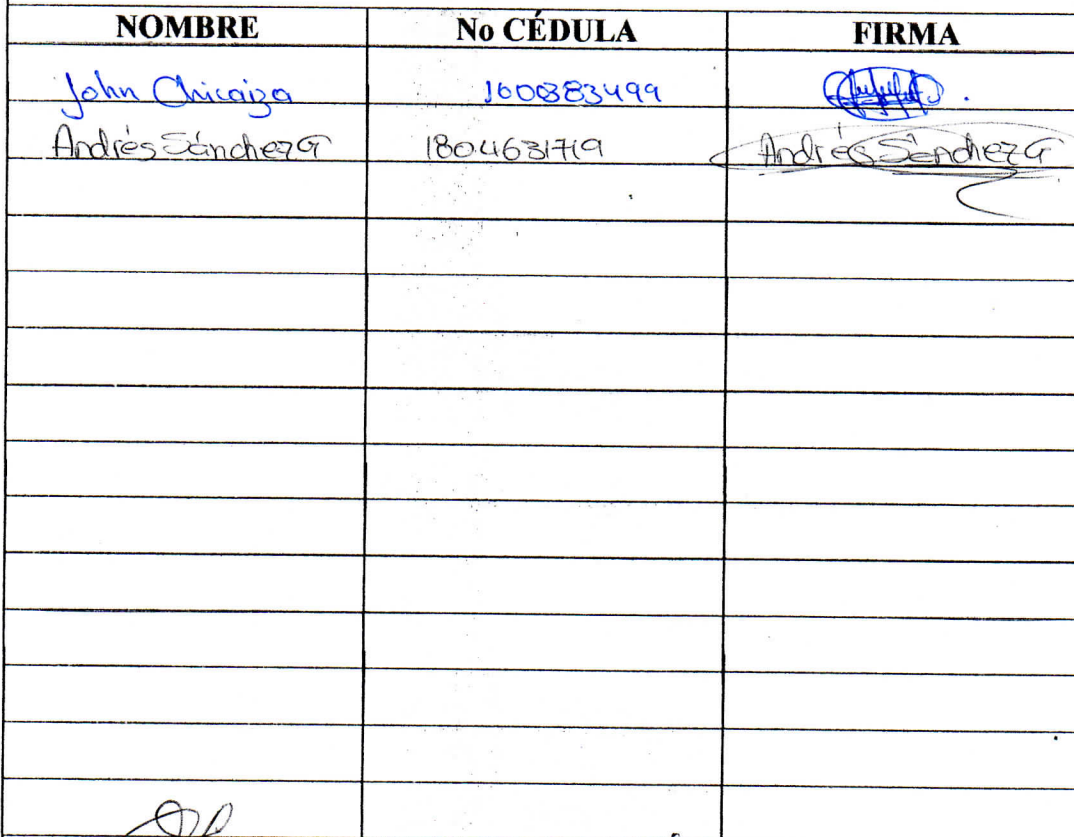 NOMBRE No CÉDULA FIRMA
John Chicaiza 1600383499
Andrés Sánchez G 1804631719 Andrés Sánchez G